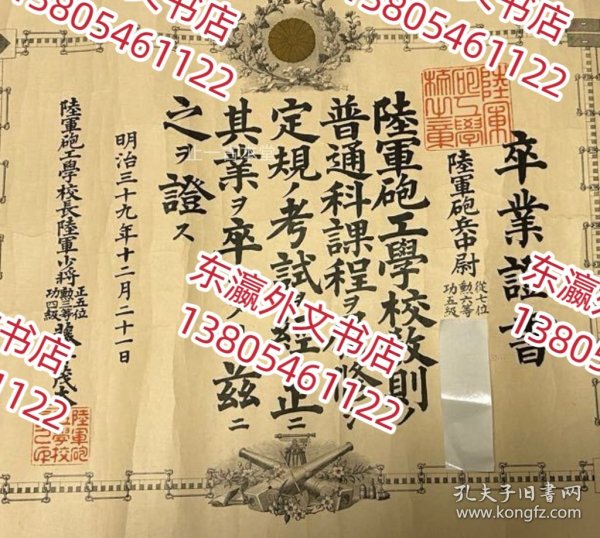 卒業證書
陸軍砲兵中尉
從七位
勲六等
功五級
陸軍砲工學校教則ノ
普通科課程ヲ修
定規ノ考試ヲ經正ニ
其業ヲ卒 茲ニ
之ヲ證ス
明治三十九年十二月二十一日
陸軍砲工學校長陸軍少將
正五位
勲三等
功四級
陸軍砲工學
陸軍砲
13805461122
东瀛外文书店
13805461122
东瀛外文书店
13805461122
孔夫子旧书网
www.kongfz.com